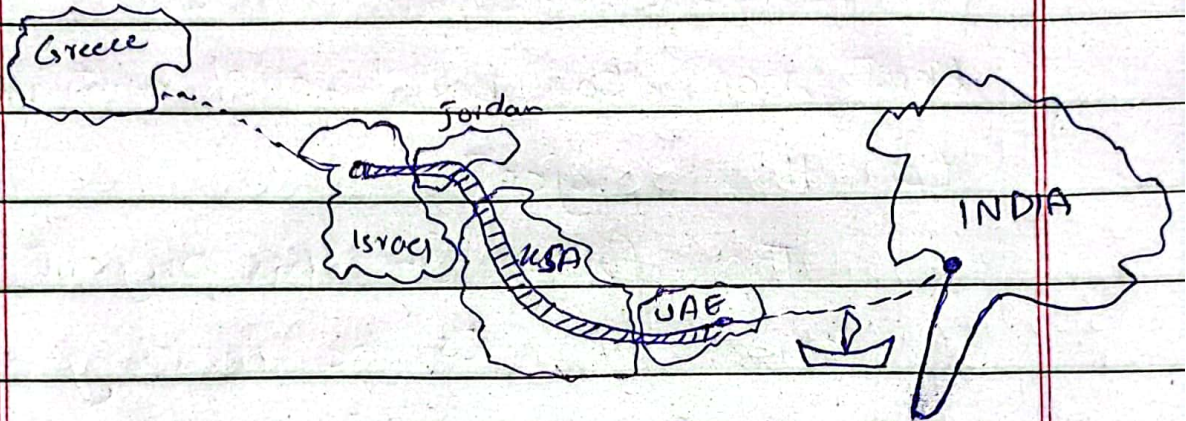 Greece
Jordan
Israel
KSA
UAE
INDIA